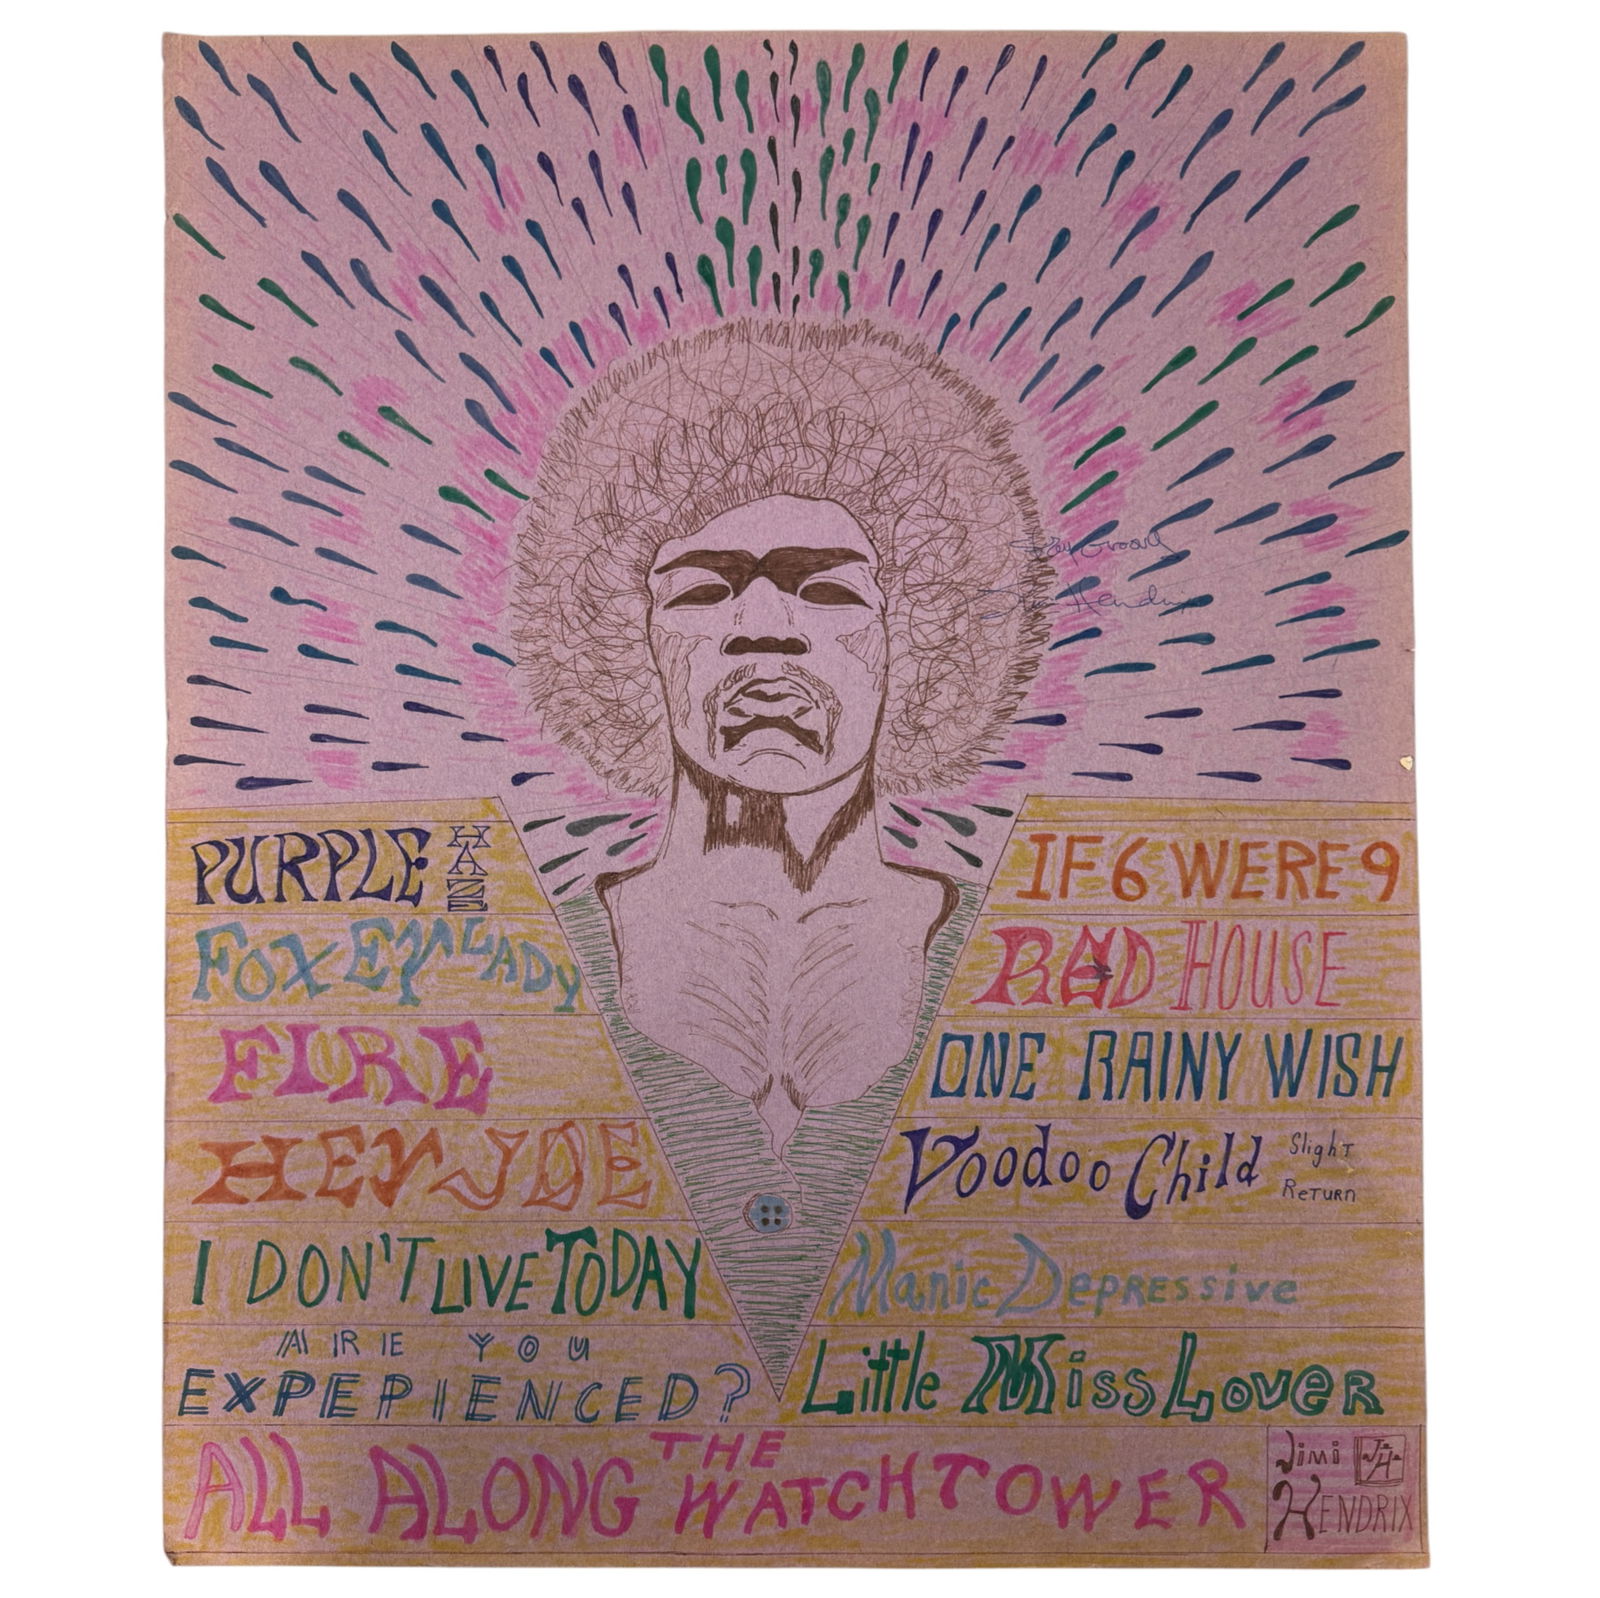 Stay Groovy
Jimi Hendrix
PURPLE HAZE
FOXEY LADY
FIRE
HEY JOE
I DON'T LIVE TODAY
ARE YOU
EXPERIENCED?
IF 6 WERE 9
RED HOUSE
ONE RAINY WISH
Voodoo Child Slight
Return
Manic Depressive
Little Miss Lover
ALL ALONG THE WATCHTOWER
Jimi JH
HENDRIX